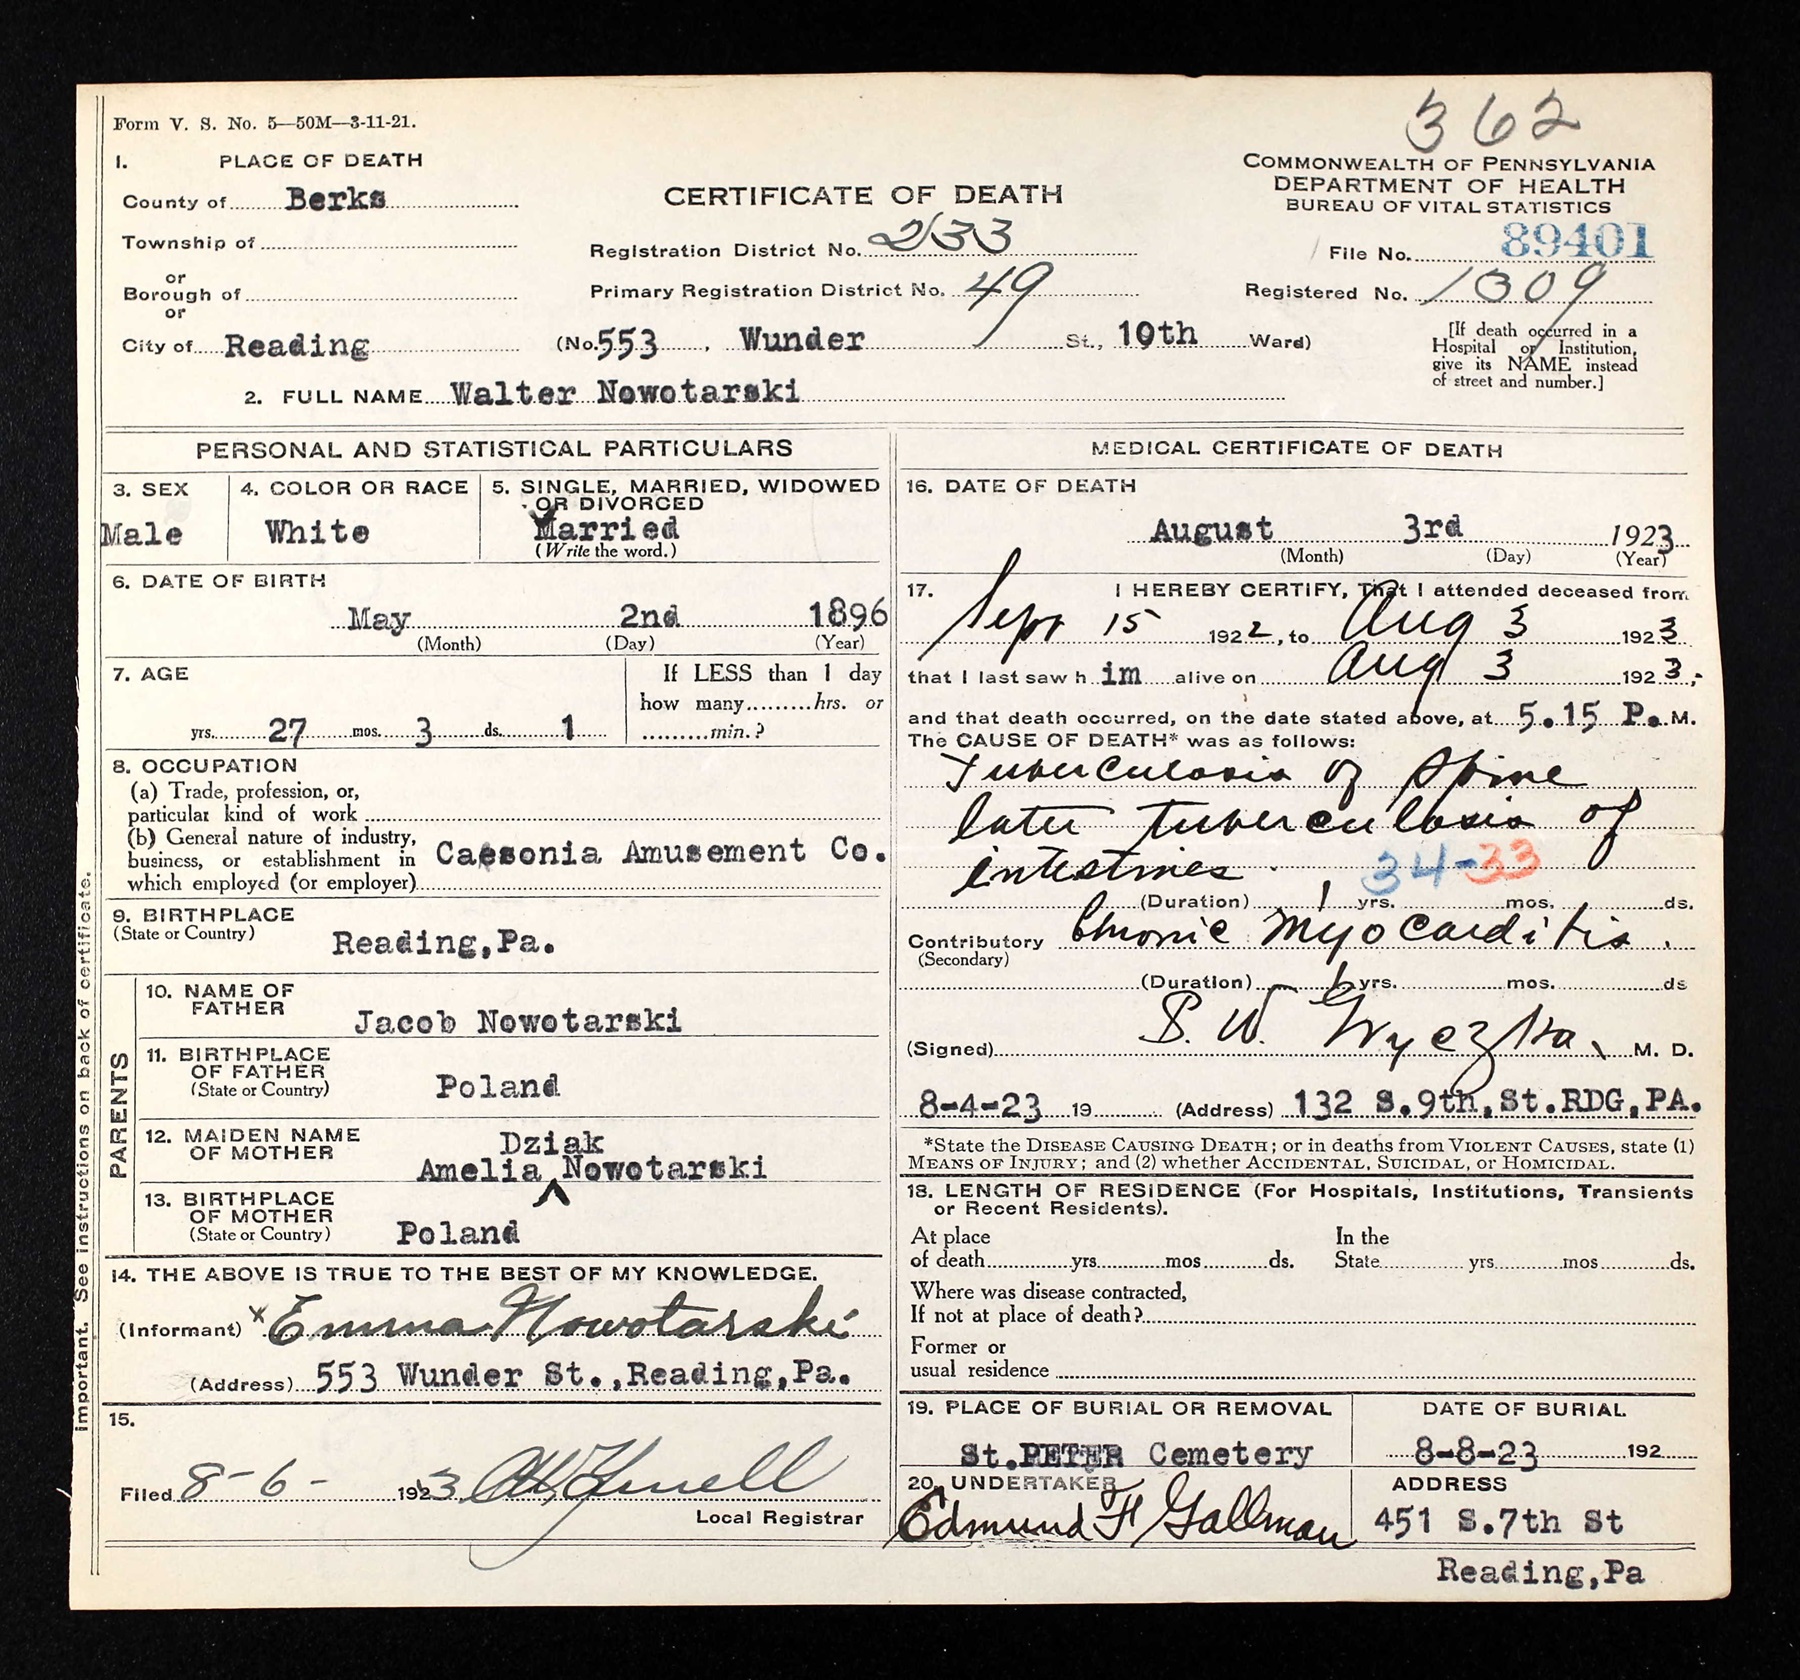 362
Form V. S. No. 5—50M—3-11-21.
1. PLACE OF DEATH
County of Berks
Township of
or
Borough of
or
City of Reading
CERTIFICATE OF DEATH
Registration District No. 233
Primary Registration District No. 49
(No. 553, Wunder St., 10th Ward)
COMMONWEALTH OF PENNSYLVANIA
DEPARTMENT OF HEALTH
BUREAU OF VITAL STATISTICS
File No. 89401
Registered No. 1309
[If death occurred in a
Hospital or Institution,
give its NAME instead
of street and number.]
2. FULL NAME Walter Nowotarski
PERSONAL AND STATISTICAL PARTICULARS
3. SEX
Male
4. COLOR OR RACE
White
5. SINGLE, MARRIED, WIDOWED
OR DIVORCED
Married
(Write the word.)
6. DATE OF BIRTH
May 2nd 1896
(Month) (Day) (Year)
7. AGE
yrs. 27 mos. 3 ds. 1
If LESS than 1 day
how many.........hrs. or
.........min.?
8. OCCUPATION
(a) Trade, profession, or,
particular kind of work
(b) General nature of industry,
business, or establishment in
which employed (or employer)
Caesonia Amusement Co.
9. BIRTHPLACE
(State or Country)
Reading,Pa.
PARENTS
10. NAME OF
FATHER
Jacob Nowotarski
11. BIRTHPLACE
OF FATHER
(State or Country)
Poland
12. MAIDEN NAME
OF MOTHER
Dziak
Amelia Nowotarski
13. BIRTHPLACE
OF MOTHER
(State or Country)
Poland
14. THE ABOVE IS TRUE TO THE BEST OF MY KNOWLEDGE.
(Informant) x Emma Nowotarski
(Address) 553 Wunder St.,Reading,Pa.
15.
Filed 8-6- 1923
Local Registrar
important. See instructions on back of certificate.
MEDICAL CERTIFICATE OF DEATH
16. DATE OF DEATH
August 3rd 1923
(Month) (Day) (Year)
17. I HEREBY CERTIFY, That I attended deceased from
Sept 15 1922, to Aug 3 1923
that I last saw h im alive on Aug 3 1923,
and that death occurred, on the date stated above, at 5.15 P. M.
The CAUSE OF DEATH* was as follows:
Tuberculosis of Spine
later tuberculosis of
intestines. 34-33
(Duration) 1 yrs. mos. ds.
Contributory Chronic Myocarditis.
(Secondary)
(Duration) yrs. mos. ds
(Signed) S. W. M. D.
8-4-23 19 (Address) 132 S.9th,St.RDG,PA.
*State the DISEASE CAUSING DEATH; or in deaths from VIOLENT CAUSES, state (1)
MEANS OF INJURY; and (2) whether ACCIDENTAL, SUICIDAL, or HOMICIDAL.
18. LENGTH OF RESIDENCE (For Hospitals, Institutions, Transients
or Recent Residents).
At place
of death yrs mos ds.
In the
State yrs mos ds.
Where was disease contracted,
If not at place of death?
Former or
usual residence
19. PLACE OF BURIAL OR REMOVAL
St.PETER Cemetery
DATE OF BURIAL
8-8-23 192
20. UNDERTAKER
Edmund F Gallman
ADDRESS
451 S.7th St
Reading,Pa